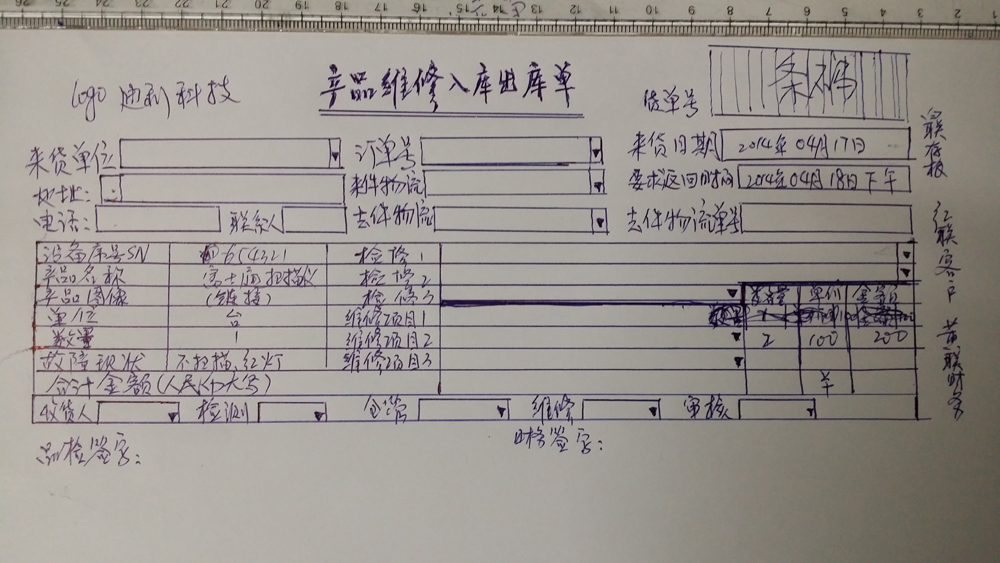 26 25 24 23 22 21 20 19 18 17 16 15 14 13 12 11 10 9 8 7 6 5 4 3 2 1
logo 迪利科技
产品维修入库出库单
货单号
条码
来货单位
订单号
来货日期 2014年04月17日
地址:
来件物流
要求返回时间 2014年04月18日下午
电话:
联系人
去件物流
去件物流单号
设备序号SN 654321 检修1
产品名称 富士通扫描仪 检修2
产品图像 (链接) 检修3 数量 单价 金额
单位 台 维修项目1
数量 1 维修项目2 2 100 200
故障现状 不扫描、红灯 维修项目3
合计金额(人民币大写) ¥
收货人 检测 仓管 维修 审核
品检签字:
财务签字:
联存根
红联客户
黄联财务